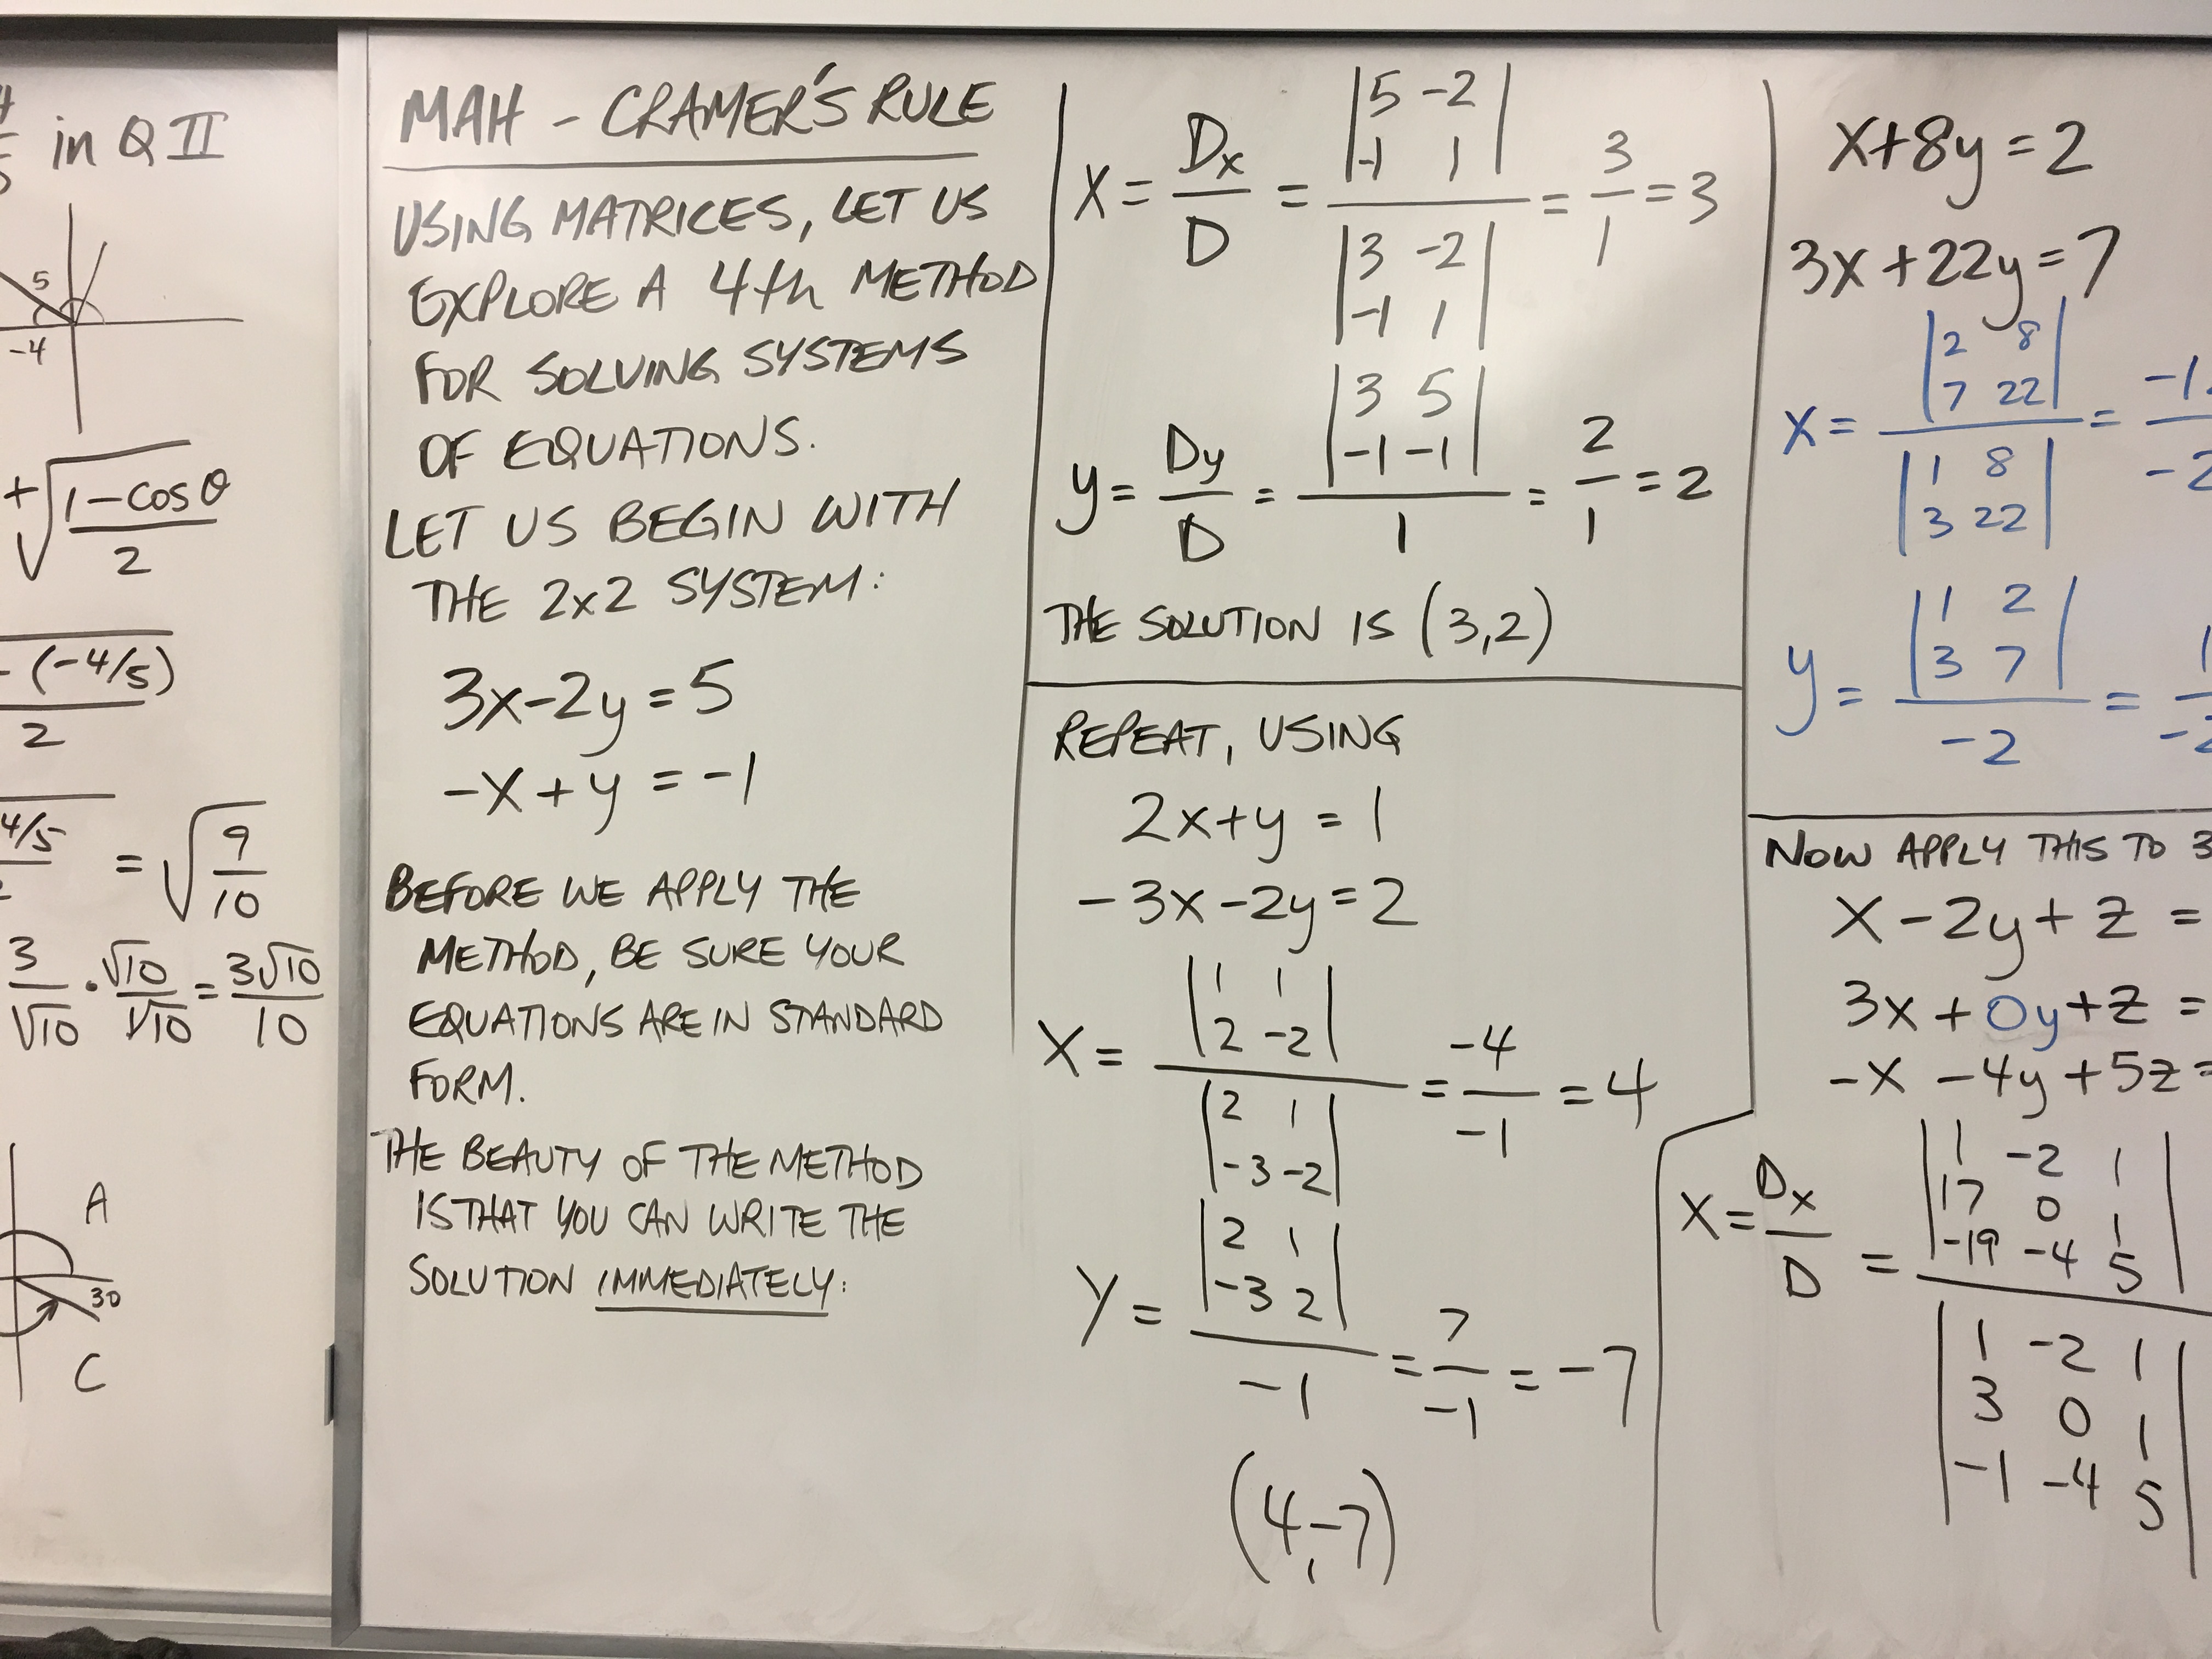 in Q II
5
-4
+√(1-cosθ)/2
-(-4/5)
2
4/5 = √9/10
3/√10 · √10/√10 = 3√10/10
A
30
C
MAH - CRAMER'S RULE
USING MATRICES, LET US
EXPLORE A 4th METHOD
FOR SOLVING SYSTEMS
OF EQUATIONS.
LET US BEGIN WITH
THE 2x2 SYSTEM:
3x-2y=5
-x+y=-1
BEFORE WE APPLY THE
METHOD, BE SURE YOUR
EQUATIONS ARE IN STANDARD
FORM.
THE BEAUTY OF THE METHOD
IS THAT YOU CAN WRITE THE
SOLUTION IMMEDIATELY:
|5 -2|
|-1 1|
x = Dx/D = = 3/1 = 3
|3 -2|
|-1 1|
|3 5|
|-1 -1|
y = Dy/D = = 2/1 = 2
1
THE SOLUTION IS (3,2)
REPEAT, USING
2x+y=1
-3x-2y=2
|1 1|
|2 -2|
X = = -4/-1 = 4
|2 1|
|-3 -2|
|2 1|
|-3 2|
Y = = 7/-1 = -7
-1
(4,-7)
x+8y=2
3x+22y=7
|2 8|
|7 22|
x = =
|1 8|
|3 22|
|1 2|
|3 7|
y = =
-2
NOW APPLY THIS TO 3
x-2y+z=
3x+0y+z=
-x-4y+5z=
|1 -2 1|
|17 0 1|
|-19 -4 5|
x = Dx/D =
|1 -2 1|
|3 0 1|
|-1 -4 5|